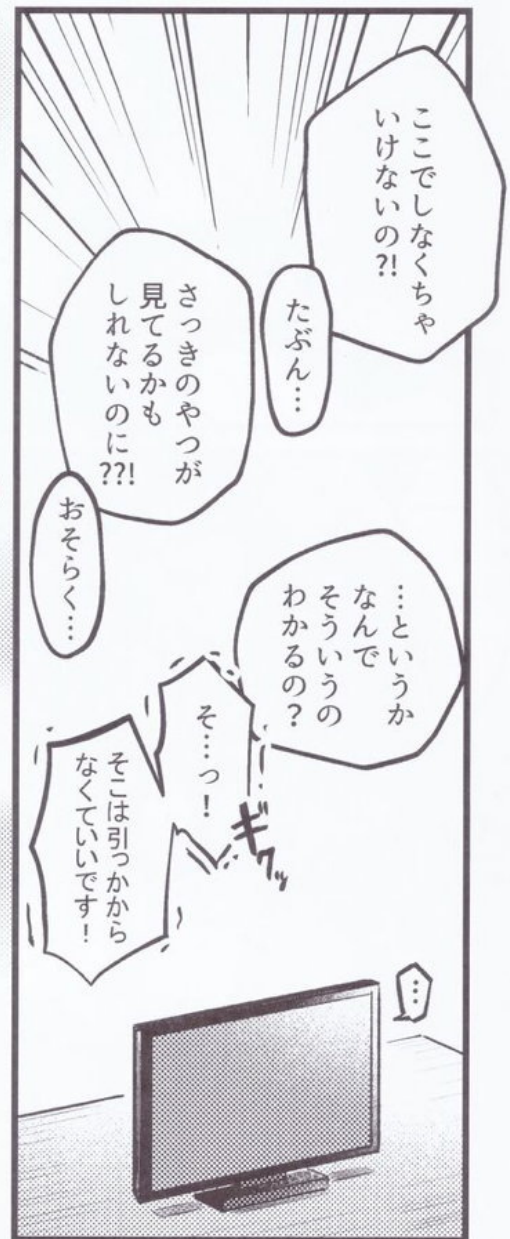 ここでしなくちゃ
いけないの?!
たぶん…
さっきのやつが
見てるかも
しれないのに
??!
おそらく…
…というか
なんで
そういうの
わかるの?
そ…っ!
ギクッ
そこは引っかから
なくていいです!
…